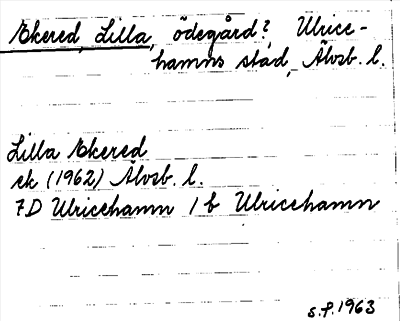 Ekered, Lilla, ödegård? Ulrice-
hamns stad, Älvsb. l.
Lilla Ekered
ek (1962) Älvsb. l.
7D Ulricehamn 1 b Ulricehamn
S.P. 1963